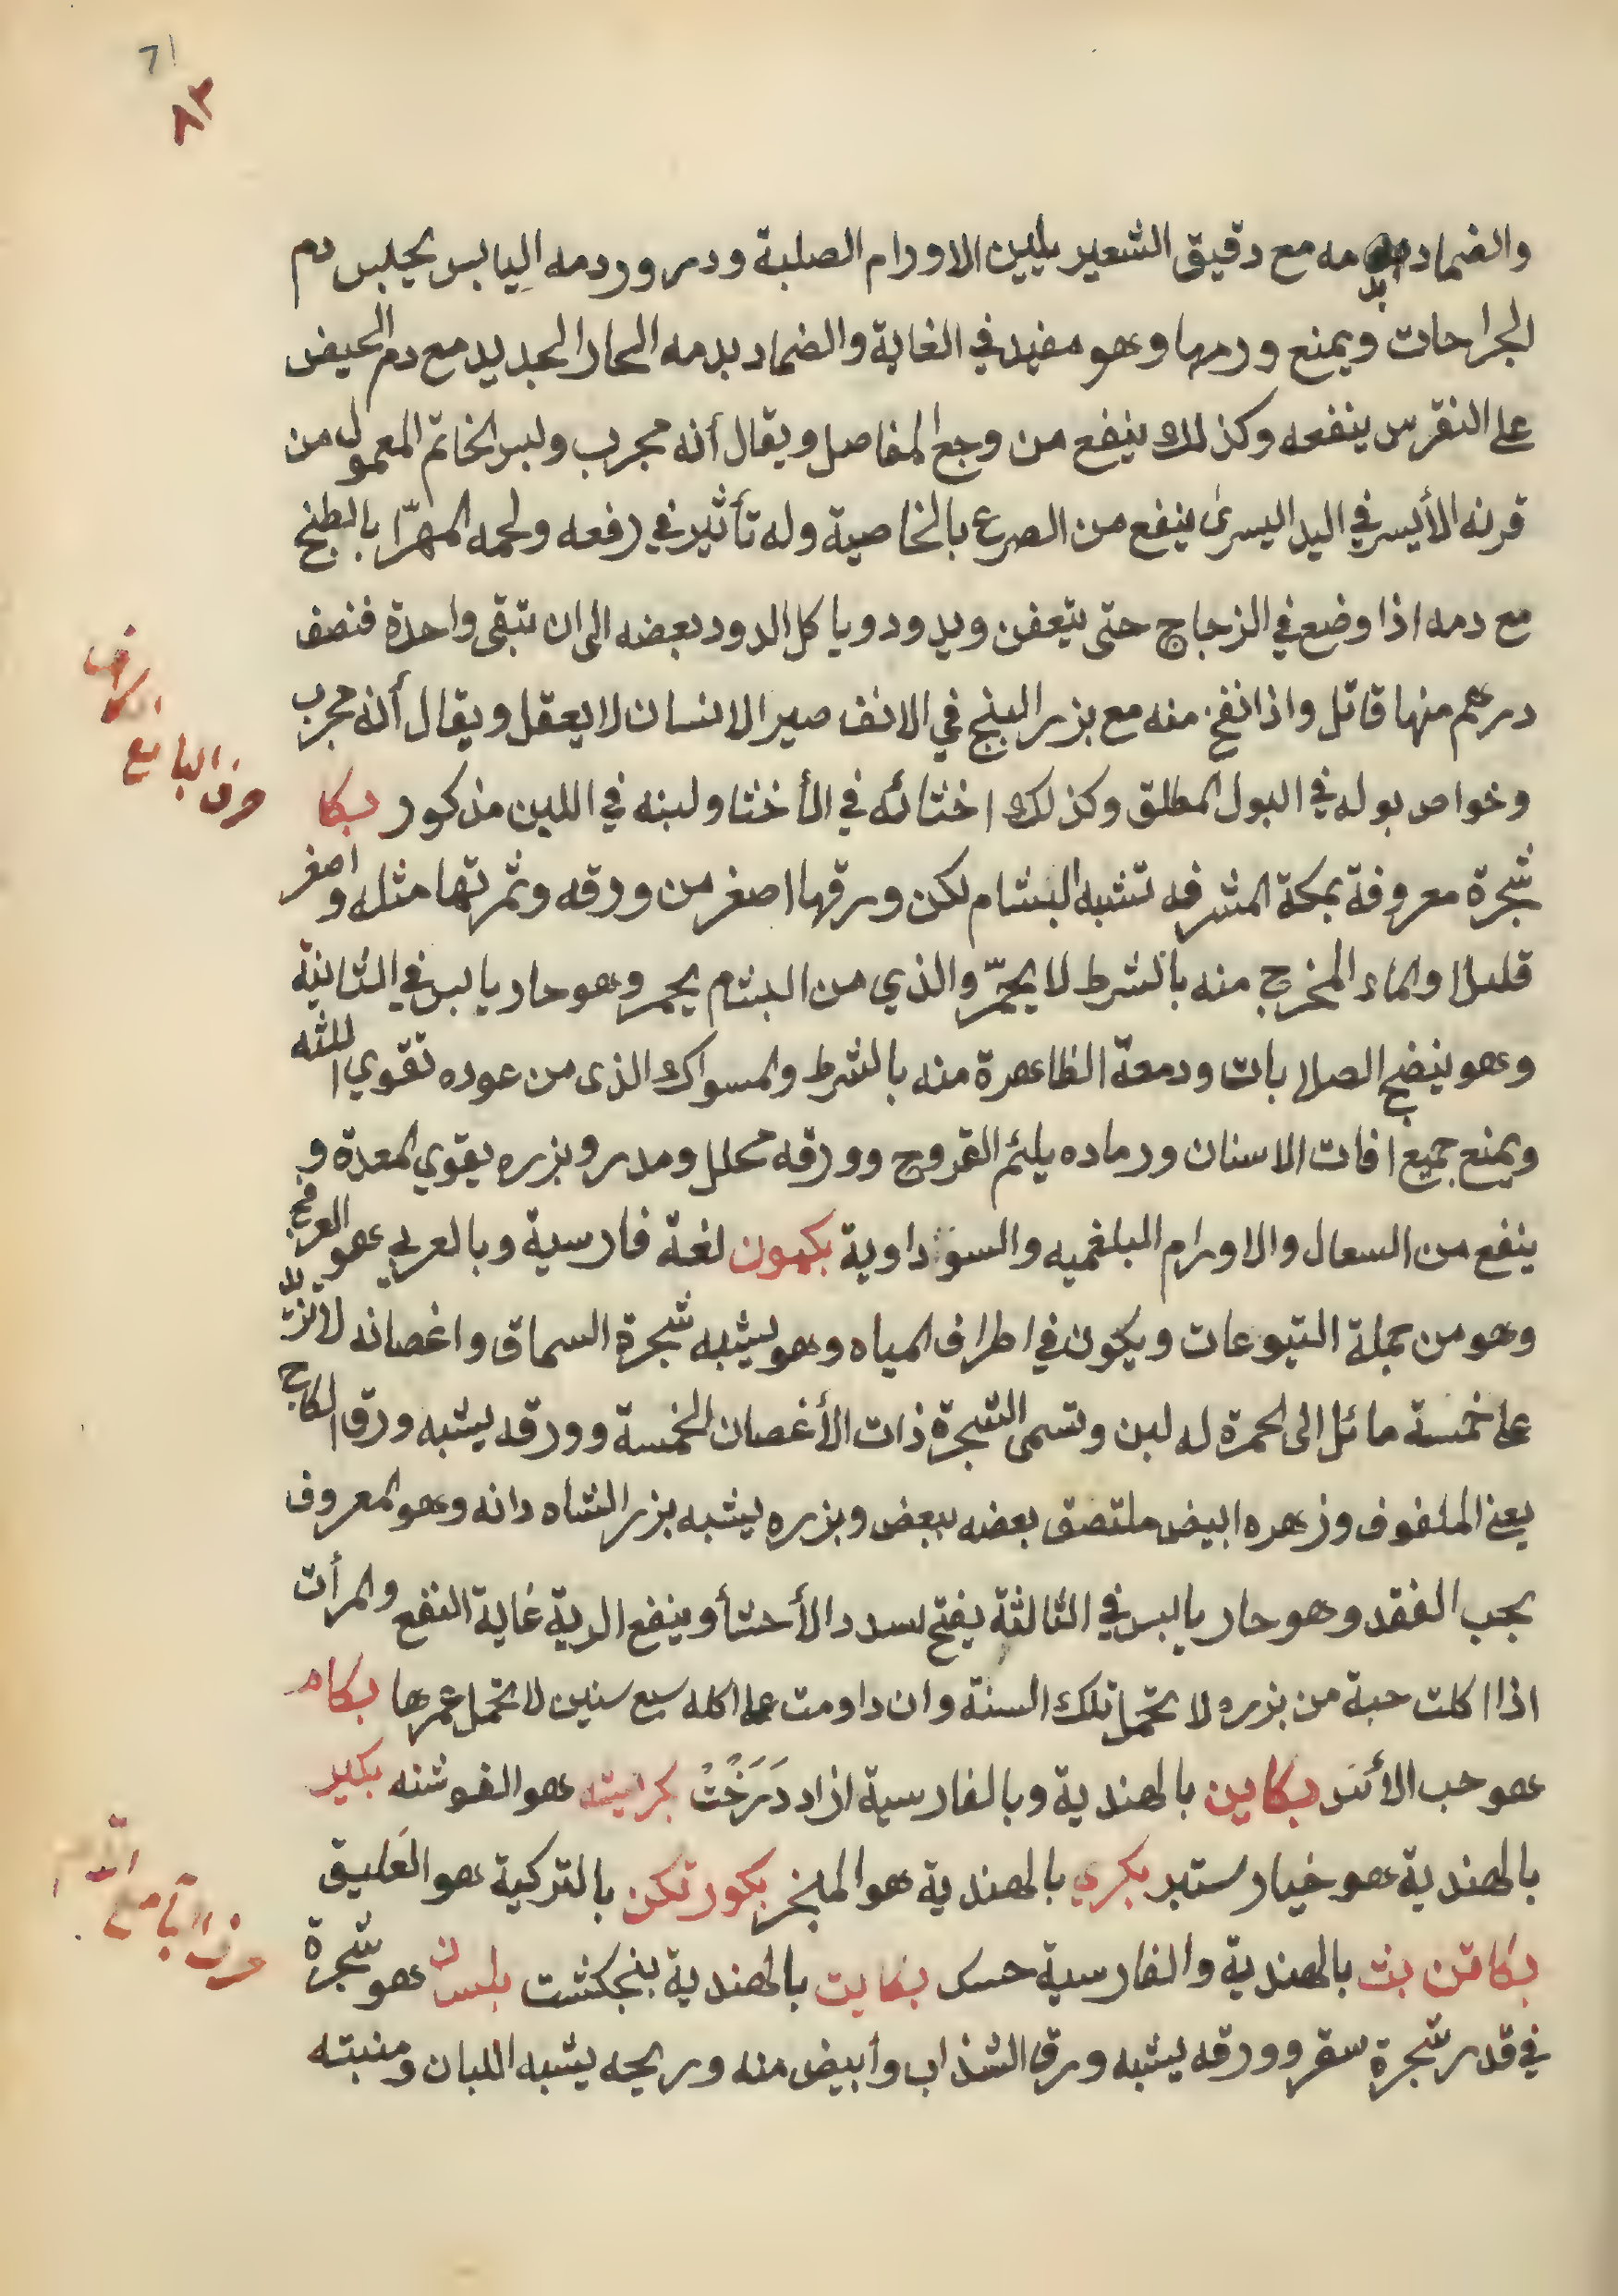 71
٨٣
والضماد بدمه مع دقيق الشعير يلين الاورام الصلبة وذرور دمه اليابس يحبس دم
الجراحات ويمنع ورمها وهو مفيد في الغاية والضماد بدمه الحار الجديد مع دم الحيض
على النقرس ينفعه وكذلك ينفع من وجع المفاصل ويقال أنه مجرب ولبس الخاتم المعمول من
قرنه الأيسر في اليد اليسرى ينفع من الصرع بالخاصية وله تأثير في رفعه ولحمه المهرّا بالطبخ
مع دمه اذا وضع في الزجاج حتى يتعفن ويدود ويا كل الدود بعضه الى ان تبقى واحدة فنصف
درهم منها قاتل واذا نفخ منه مع بزر البنج في الانف صير الانسان لا يعقل ويقال أنه مجرب
وخواص بوله في البول المطلق وكذلك اخثائه في الأخثا ولبنه في اللبن مذكور بكا
حرف البا مع الكاف
شجرة معروفة بمكة المشرفه تشبه البشام لكن ورقها اصغر من ورقه وثمرتها مثله و اصغر
قليلا والماء المخرج منه بالشرط لا يحمّر والذي من البشام يحمر وهو حار يابس في الثانية
وهو ينضج الصلابات ودمعة الظاهرة منه بالشرط والمسواك الذى من عوده تقوي اللثه
ويمنع جميع افات الاسنان ورماده يلئم القروح وورقه محلل ومدر وبزره يقوي المعدة و
ينفع من السعال والاورام البلغميه والسوداوية بكهون لغة فارسية وبالعربي هو
وهو من جملة اليتوعات ويكون في اطراف المياه وهو يشبه شجرة السماق واغصانه لا تزيد
على خمسة مائل الى الحمرة له لبن وتسمى الشجرة ذات الأغصان الخمسة وورقه يشبه ورق
يعني الملفوف وزهره ابيض ملتصق بعضه ببعض وبزره يشبه بزر الشاه دانه وهو المعروف
بحب الفقد وهو حار يابس في الثالثة يفتح سدد الأحشأ وينفع الرية غاية النفع والمرأت
اذا اكلت حبة من بزره لا تحمل تلك السنة وان داومت على اكله سبع سنين لا تحمل عمرها بكام
هو حب الأثل بكاين بالهندية وبالفارسية ازاد دَرَخْتْ هو الغوشنه بكير
بالهندية هو خيار ستبر بكري بالهندية هو المبخر بكورتكن بالتركية هو العَليق
بكاتن بث بالهندية والفارسية حسك بكايت بالهندية بنجكشت بلسان هو شجرة
حرف البا مع اللام
في قدر شجرة سقر وورقه يشبه ورق الشذاب وأبيض منه وريحه يشبه اللبان ومنبته